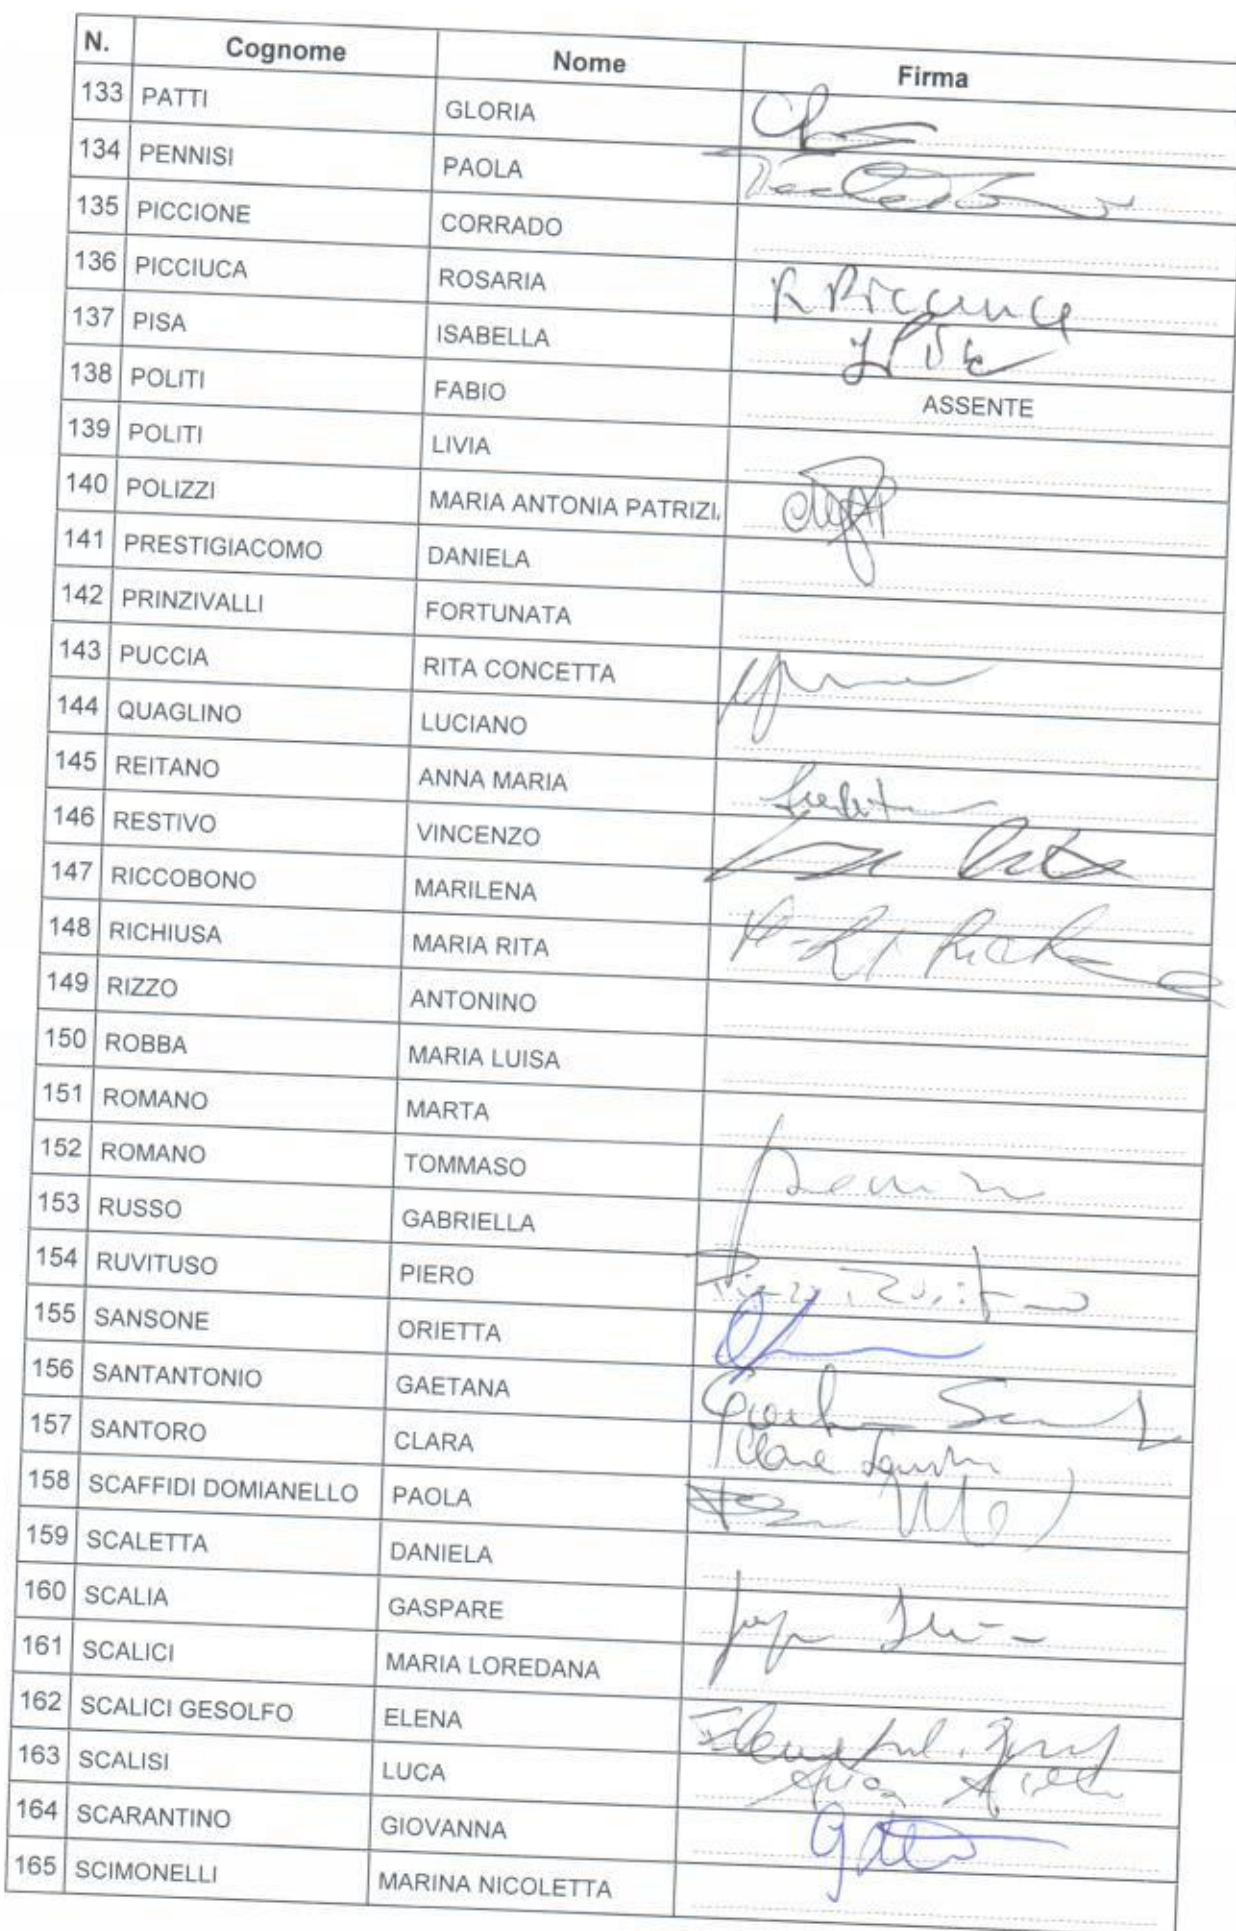 N. Cognome Nome Firma
133 PATTI GLORIA
134 PENNISI PAOLA
135 PICCIONE CORRADO
136 PICCIUCA ROSARIA
137 PISA ISABELLA
138 POLITI FABIO ASSENTE
139 POLITI LIVIA
140 POLIZZI MARIA ANTONIA PATRIZI
141 PRESTIGIACOMO DANIELA
142 PRINZIVALLI FORTUNATA
143 PUCCIA RITA CONCETTA
144 QUAGLINO LUCIANO
145 REITANO ANNA MARIA
146 RESTIVO VINCENZO
147 RICCOBONO MARILENA
148 RICHIUSA MARIA RITA
149 RIZZO ANTONINO
150 ROBBA MARIA LUISA
151 ROMANO MARTA
152 ROMANO TOMMASO
153 RUSSO GABRIELLA
154 RUVITUSO PIERO
155 SANSONE ORIETTA
156 SANTANTONIO GAETANA
157 SANTORO CLARA
158 SCAFFIDI DOMIANELLO PAOLA
159 SCALETTA DANIELA
160 SCALIA GASPARE
161 SCALICI MARIA LOREDANA
162 SCALICI GESOLFO ELENA
163 SCALISI LUCA
164 SCARANTINO GIOVANNA
165 SCIMONELLI MARINA NICOLETTA